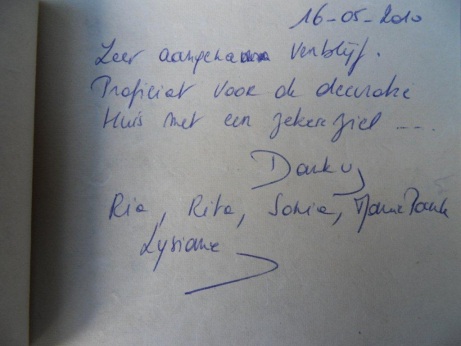 16-05-2010
Zeer aangenaam verblijf.
Proficiat voor de decoratie
Huis met een zekere ziel ....
Dank u,
Ria, Rita, Sonia,
Lysiane